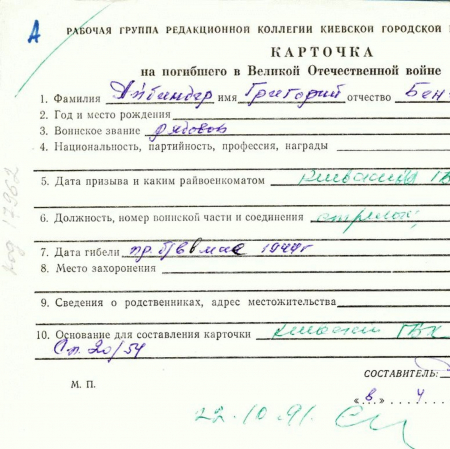 А
РАБОЧАЯ ГРУППА РЕДАКЦИОННОЙ КОЛЛЕГИИ КИЕВСКОЙ ГОРОДСКОЙ
КАРТОЧКА
на погибшего в Великой Отечественной войне
1. Фамилия Айбиндер имя Григорий отчество Бен
2. Год и место рождения
3. Воинское звание рядовой
4. Национальность, партийность, профессия, награды
5. Дата призыва и каким райвоенкоматом
6. Должность, номер воинской части и соединения стрелок
7. Дата гибели пр. б/в в мае 1944г
8. Место захоронения
9. Сведения о родственниках, адрес местожительства
10. Основание для составления карточки
20/54
СОСТАВИТЕЛЬ:
М. П.
«в» 4
22.10.91.
17962